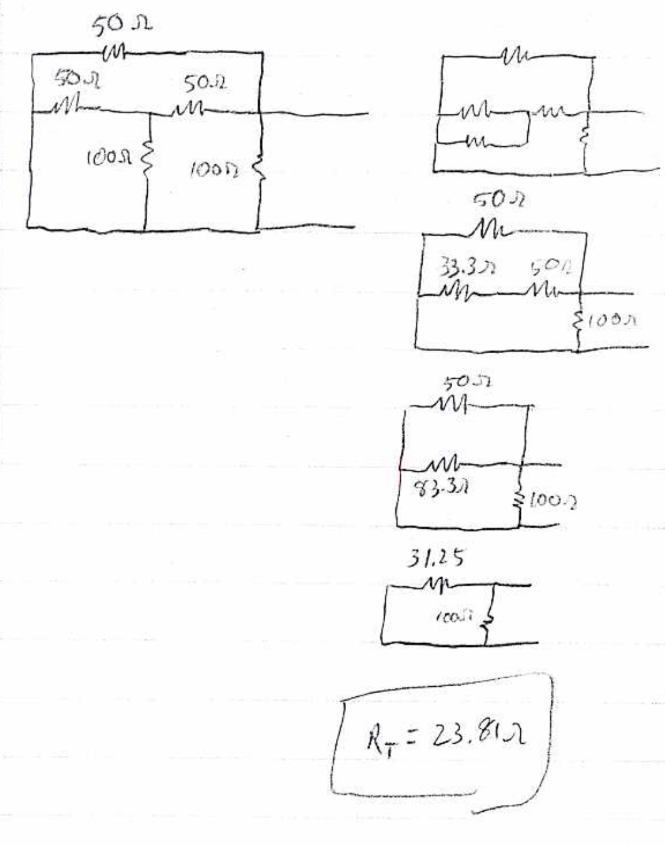 50 Ω
50Ω 50Ω
100Ω 100Ω
50Ω
33.3Ω 50Ω
100Ω
50Ω
83.3Ω
100Ω
31.25
100Ω
R_T = 23.81Ω